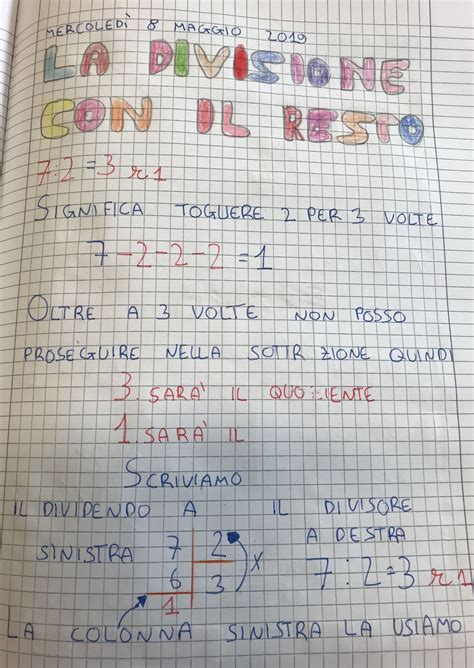 MERCOLEDÌ 8 MAGGIO 2019
LA DIVISIONE
CON IL RESTO
7:2=3 r1
SIGNIFICA TOGLIERE 2 PER 3 VOLTE
7-2-2-2=1
OLTRE A 3 VOLTE NON POSSO
PROSEGUIRE NELLA SOTTR ZIONE QUINDI
3. SARA' IL QUOZIENTE
1. SARA' IL
SCRIVIAMO
IL DIVIDENDO A IL DIVISORE
SINISTRA 7 2 A DESTRA
6 3 X 7:2=3 r1
1
LA COLONNA SINISTRA LA USIAMO